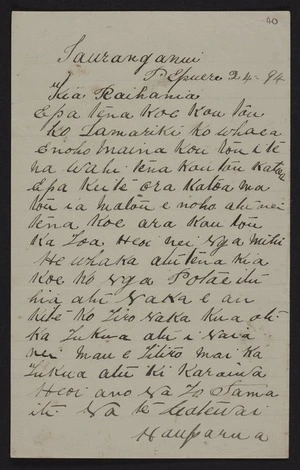 40
Tauranganui
Pepuere 24 - 94
Kia Raihania
E pa tena koe Koutou
ko Tamariki ko whaea
E noho maina Koutou i te
na wahi tena Koutou Katoa
E pa Kei te ora Katoa ma
tou ia matou e noho atu nei
tena Koe ara Koutou
Ka Toa Heoi nei nga Mihi
He whaka atu tena kia
Koe Ko nga Potae
hia atu Naka e au
kite Ko Tiro Naka Kua oti
Ka Tukua atu i Naia
nei Mau e Titiro mai Ka
Tukua atu ki Karaiwa
Heoi ano Na To Tama
iti Na te
Hauparua